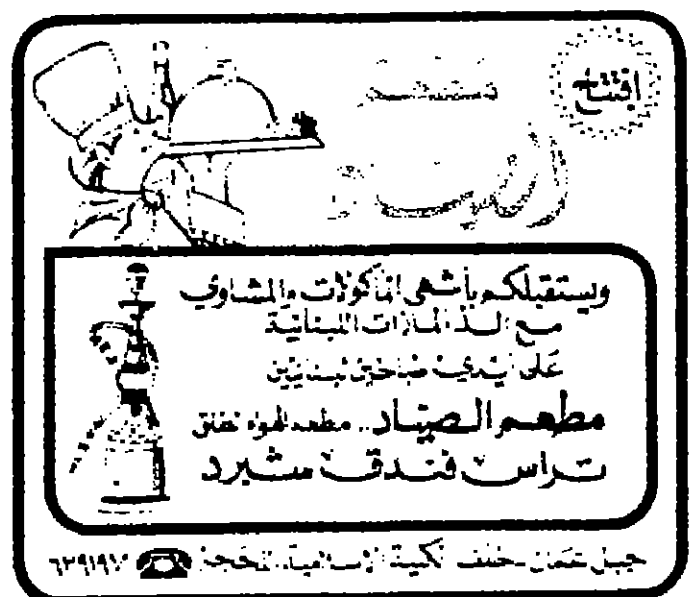 افتتح
ويستقبلكم بأشهى المأكولات والمشاوي
مع الذ المازات اللبنانية
على أيدي طباخين لبنانيين
مطعم الصياد.. مطعم الهواء الطلق
تراس فندق مشيرد
جبل عمان - خلف الكلية الاسلامية، للحجز